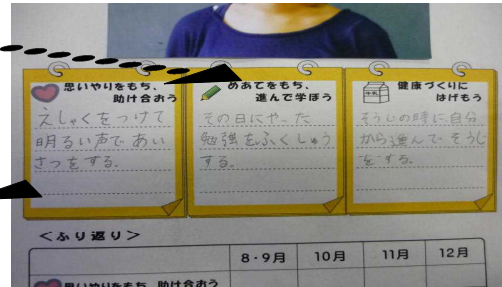 思いやりをもち、
助け合おう
えしゃくをつけて
明るい声であい
さつをする。
めあてをもち、
進んで学ぼう
その日にやった
勉強をふくしゅう
する。
健康づくりに
はげもう
そうじの時に自分
から進んでそうじ
をする。
<ふり返り>
8・9月 10月 11月 12月
思いやりをもち、助け合おう